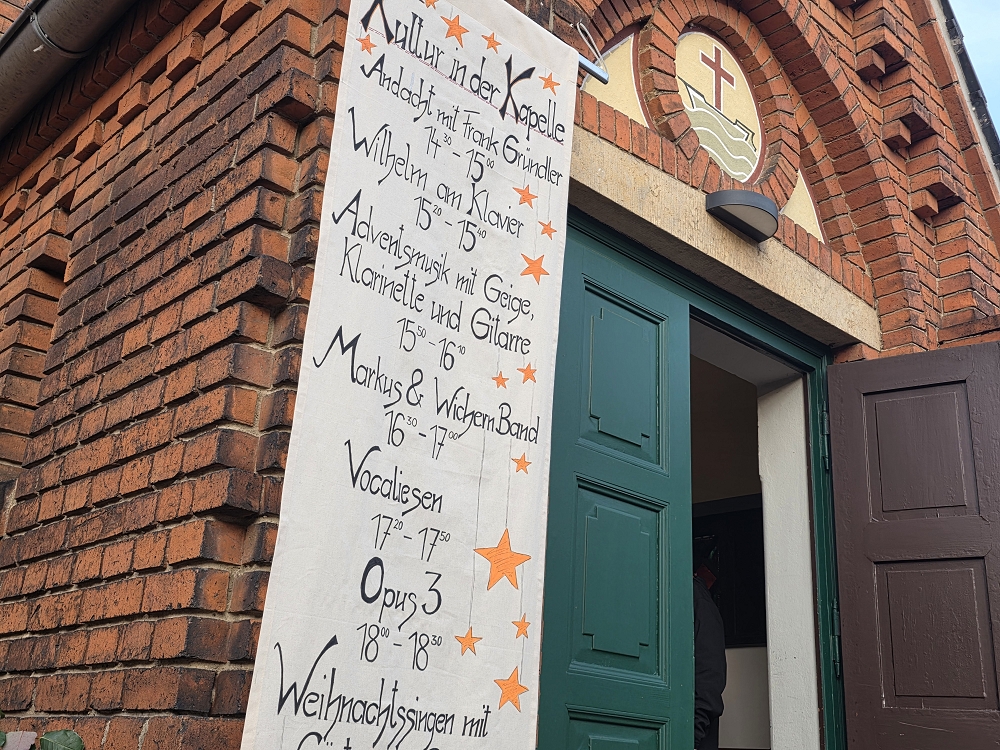 Kultur in der Kapelle
Andacht mit Frank Gründler
14³⁰ - 15⁰⁰
Wilhelm am Klavier
15²⁰ - 15⁴⁰
Adventsmusik mit Geige,
Klarinette und Gitarre
15⁵⁰ - 16¹⁰
Markus & Wichern Band
16³⁰ - 17⁰⁰
Vocaliesen
17²⁰ - 17⁵⁰
Opus 3
18⁰⁰ - 18³⁰
Weihnachtssingen mit